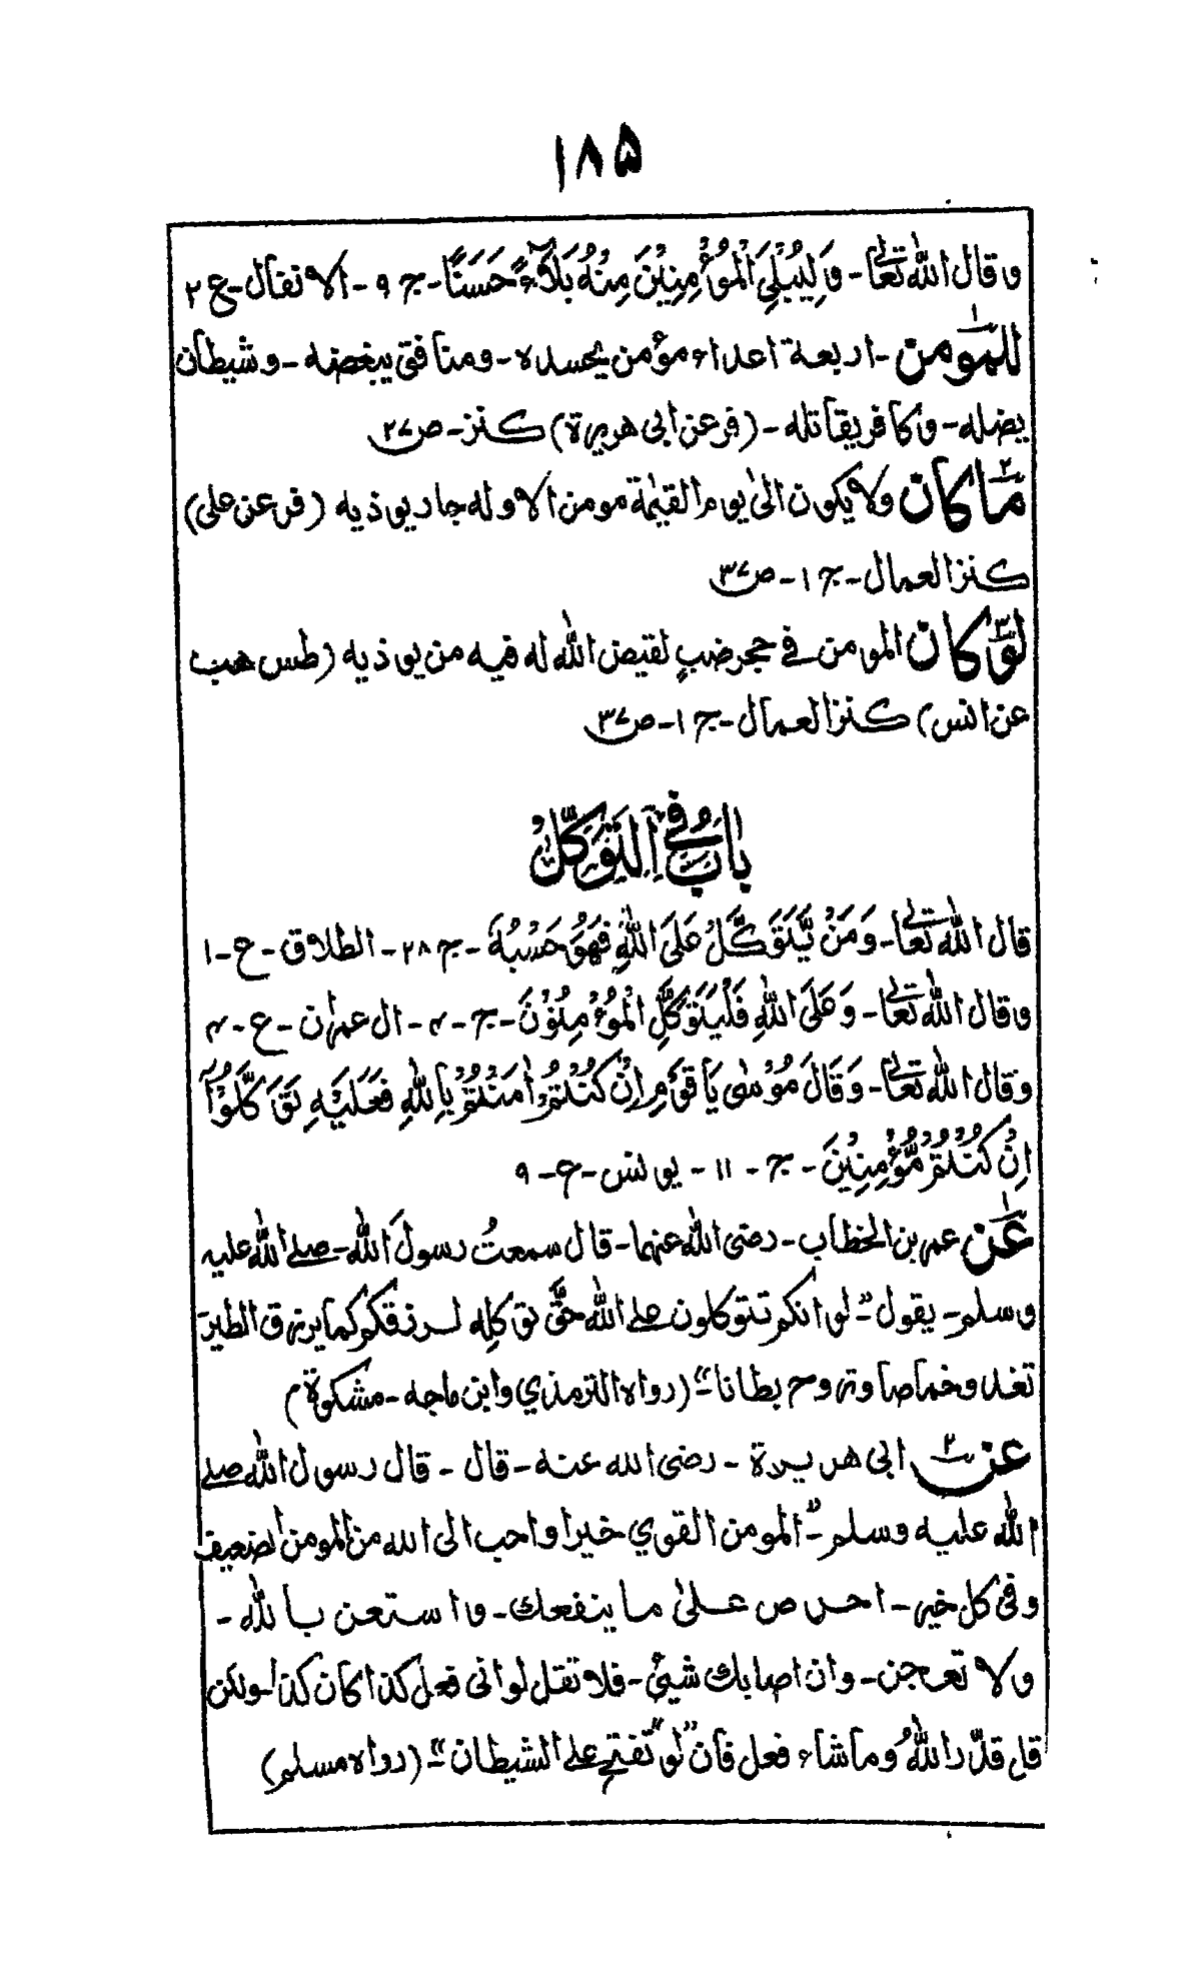 ۱۸۵
وقال الله تعالى۔ وَلِيُبْلِيَ الْمُؤْمِنِيْنَ مِنْهُ بَلَآءً حَسَنًا۔ ج ۹۔ الانفال۔ ع ۲
للمؤمن۔ اربعة اعداء مؤمن يحسده۔ ومنافق يبغضه۔ وشيطان
يضله۔ وكافر يقاتله۔ (فر عن ابى هريرة) كنز۔ ص۲۷
ما كان ولا يكون الىٰ يوم القيٰمة مومن الا وله جار يوذيه (فر عن على)
كنز العمال۔ ج ۱۔ ص۳۷
لو كان المومن فى حجر ضبٍ لقيض الله له فيه من يوذيه (طس هب
عن انس) كنز العمال۔ ج ۱۔ ص۳۷
بابُ فِى التَّوَكُّلِ
قال الله تعالى۔ وَمَنْ يَّتَوَكَّلْ عَلَى اللهِ فَهُوَ حَسْبُهٗ۔ ج ۲۸۔ الطلاق۔ ع۔ ۱
وقال الله تعالى۔ وَعَلَى اللهِ فَلْيَتَوَكَّلِ الْمُؤْمِنُوْنَ۔ ج۔ ۴۔ ال عمران۔ ع۔ ۴
وقال الله تعالى۔ وَقَالَ مُوْسٰى يَاقَوْمِ اِنْ كُنْتُمْ اٰمَنْتُمْ بِاللهِ فَعَلَيْهِ تَوَكَّلُوْٓا
اِنْ كُنْتُمْ مُّؤْمِنِيْنَ۔ ج۔ ۱۱۔ يونس۔ ع۔ ۹
عن عمر بن الخطاب۔ رضى الله عنهما۔ قال سمعتُ رسولَ الله۔ صلے الله عليه
وسلم۔ يقول۔ "لو انكم تتوكلون علے الله حقَّ توكلِه لرزقكم كما يرزق الطيرَ
تغدو خماصا وتروح بطانا۔" (رواه الترمذي وابن ماجه۔ مشكوة م
عن ۲ ابى هريرة۔ رضى الله عنه۔ قال۔ قال رسول الله صلے
الله عليه وسلم۔ "المومن القوي خير واحب الى الله من المومن الضعيف
وفى كل خير۔ احرص علىٰ ما ينفعك۔ واستعن بالله۔
ولا تعجن۔ وان اصابك شيئ۔ فلا تقل لو انى فعل كذا كان كذا۔ ولكن
قل قدّر اللهُ وما شاء فعل فان "لو" تفتح علے الشيطان۔" (رواه مسلم)